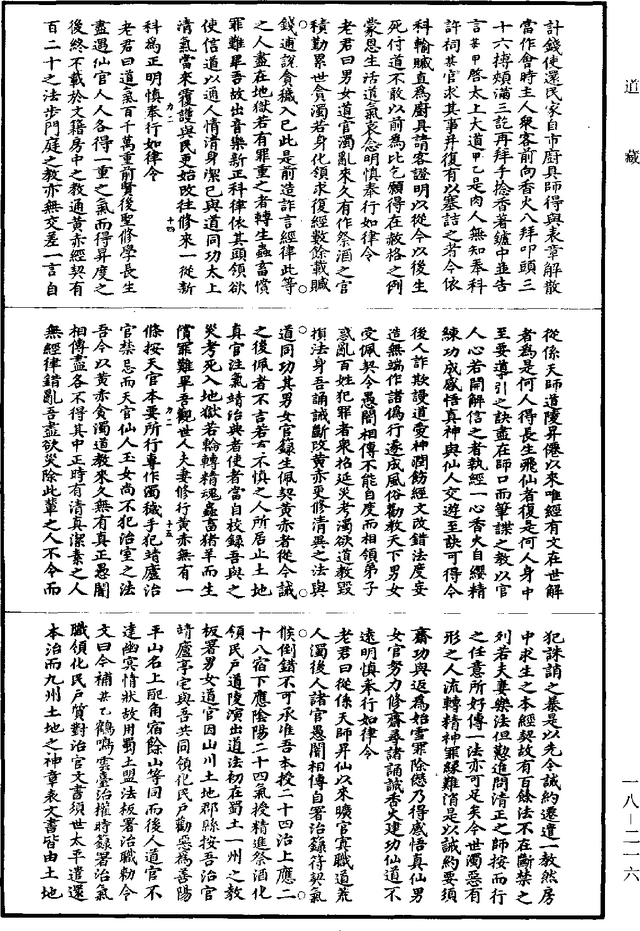 道藏
計錢使還民家自市廚具師得與表章解散
當作會時主人衆客前向香火八拜叩頭三
十六搏頰滿三訖再拜手捻香著鑪中並告
言某甲啓太上大道甲乙是肉人無知奉科
許祠某官求其事幷復有以塞詰之者今依
科輸贓直為廚具請客證明以從今以後生
死付道不敢以前為比乞願得在赦格之例
蒙恩生活道氣哀念明慎奉行如律令
老君曰男女道官濁亂來久有作祭酒之官
積勤累世貪濁若身化領求復經數餘載贓
錢逋誤貪穢入己此是前造詐言經律此等
之人盡在地獄若有罪重之者轉生蟲畜償
罪難畢吾故出音樂新正科律依其頭領欲
使信道以通人情清身潔己與道同功太上
清氣當來覆護與民更始改往修來一從新
科為正明慎奉行如律令
力二
十四
老君曰道氣百千萬重前賢後聖修學長生
盡遇仙官人人各得一重之氣而得昇度之
後終不載於文籍房中之教通黃赤經契有
百二十之法步門庭之教亦無交差一言自
從係天師道陵昇僊以來唯經有文在世解
者為是何人得長生飛仙者復是何人身中
至要導引之訣盡在師口而筆諜之教以官
人心若開解信之者執經一心香火自纓精
練功成感悟真神與仙人交遊至訣可得今
後人詐欺謾道愛神潤飾經文改錯法度妄
造無端作諸偽行遂成風俗勸教天下男女
受佩契令愚闇相傳不能自度而相領弟子
惑亂百姓犯罪者衆招延災考濁欲道教毀
損法身吾誦誡斷改黃赤更修清異之法與
道同功其男女官籙生佩契黃赤者從今誡
之後佩者不言若去不慎之人所居止土地
真官注氣靖治典者使者當自校錄吾與之
災考死入地獄若輪轉精魂蟲畜猪羊而生
償罪難畢吾觀世人夫妻修行黃赤無有一
力二
十五
條按天官本要所行專作濁穢手犯靖廬治
官禁忌而天官仙人玉女尚不犯治室之法
吾今以黃赤貪濁道教來久無有真正愚闇
相傳盡各不得其中正時有清真潔素之人
無經律錯亂吾盡欲災除此輩之人不令而
犯誅誚之綦是以先令誡約還遵一教然房
中求生之本經契故有百餘法不在斷禁之
列若夫妻樂法但懃進問清正之師按而行
之任意所好傳一法亦可足矣今世濁惡有
形之人流轉精神罪緣難消是以誡約要須
齋功與返為始雪罪除愆乃得感悟真仙男
女官努力修齋尋諸誦誡香火建功仙道不
遠明慎奉行如律令
老君曰從係天師昇仙以來曠官寘職道荒
人濁後人諸官愚闇相傳自署治籙符契氣
候倒錯不可承准吾本授二十四治上應二
十八宿下應陰陽二十四氣授精進祭酒化
領民戶道陵演出道法初在蜀土一州之教
板署男女道官因山川土地郡縣按吾治官
靖廬亭宅與吾共同領化民戶勸惡為善陽
平山名上配角宿餘山等同而後人道官不
達幽冥情狀故用蜀土盟法板署治職勑令
文曰今補某乙鶴鳴雲臺治權時籙署治氣
職領化民戶質對治官文書須世太平遣還
本治而九州土地之神章表文書皆由土地
一八—二一六